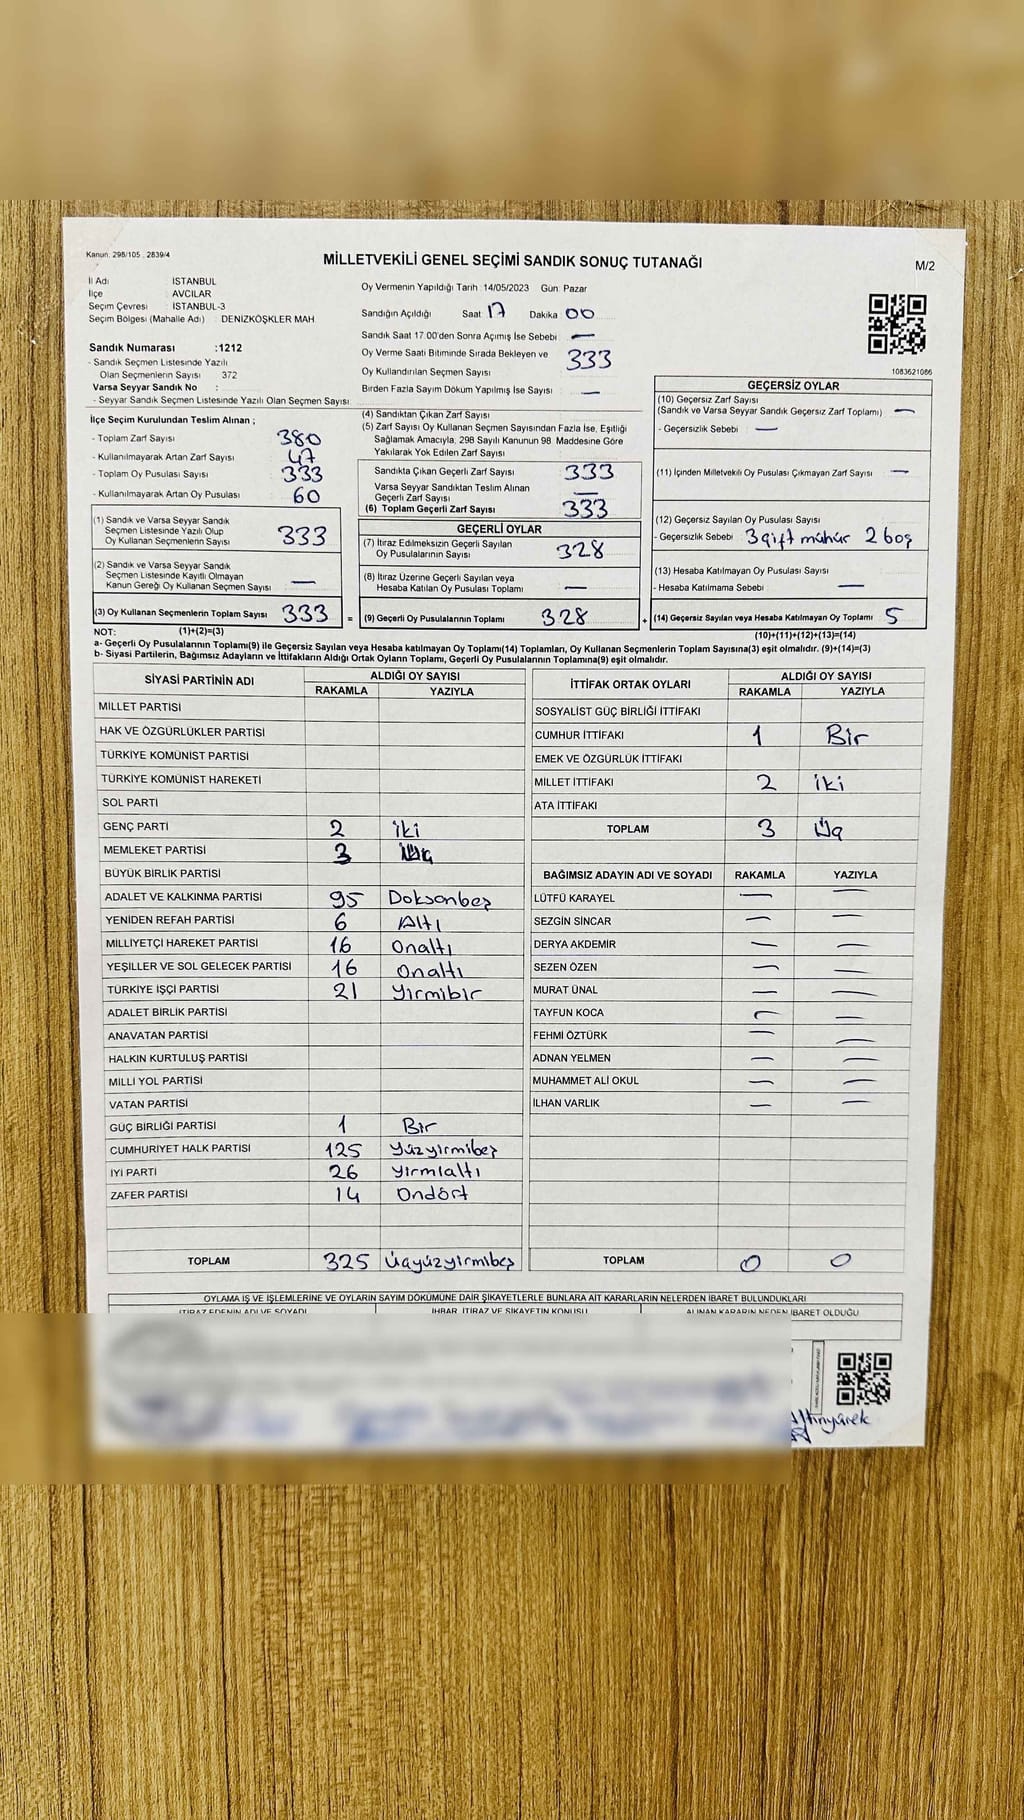 Kanun: 298/105 , 2839/4
MİLLETVEKİLİ GENEL SEÇİMİ SANDIK SONUÇ TUTANAĞI
M/2
İl Adı : İSTANBUL
İlçe : AVCILAR
Seçim Çevresi : İSTANBUL-3
Seçim Bölgesi (Mahalle Adı) : DENİZKÖŞKLER MAH
Sandık Numarası :1212
- Sandık Seçmen Listesinde Yazılı
Olan Seçmenlerin Sayısı : 372
Varsa Seyyar Sandık No :
- Seyyar Sandık Seçmen Listesinde Yazılı Olan Seçmen Sayısı:
Oy Vermenin Yapıldığı Tarih :14/05/2023 Gün: Pazar
Sandığın Açıldığı Saat 17 Dakika 00
Sandık Saat 17.00'den Sonra Açımış İse Sebebi : —
Oy Verme Saati Bitiminde Sırada Bekleyen ve
Oy Kullandırılan Seçmen Sayısı 333
Birden Fazla Sayım Döküm Yapılmış İse Sayısı : —
1083621086
İlçe Seçim Kurulundan Teslim Alınan ;
- Toplam Zarf Sayısı 380
- Kullanılmayarak Artan Zarf Sayısı 47
- Toplam Oy Pusulası Sayısı 333
- Kullanılmayarak Artan Oy Pusulası 60
(1) Sandık ve Varsa Seyyar Sandık
Seçmen Listesinde Yazılı Olup
Oy Kullanan Seçmenlerin Sayısı 333
(2) Sandık ve Varsa Seyyar Sandık
Seçmen Listesinde Kayıtlı Olmayan
Kanun Gereği Oy Kullanan Seçmen Sayısı —
(3) Oy Kullanan Seçmenlerin Toplam Sayısı 333 =
(1)+(2)=(3)
(4) Sandıktan Çıkan Zarf Sayısı
(5) Zarf Sayısı Oy Kullanan Seçmen Sayısından Fazla İse, Eşitliği
Sağlamak Amacıyla, 298 Sayılı Kanunun 98. Maddesine Göre
Yakılarak Yok Edilen Zarf Sayısı:
Sandıkta Çıkan Geçerli Zarf Sayısı 333
Varsa Seyyar Sandıktan Teslim Alınan
Geçerli Zarf Sayısı —
(6) Toplam Geçerli Zarf Sayısı 333
GEÇERLİ OYLAR
(7) İtiraz Edilmeksizin Geçerli Sayılan
Oy Pusulalarının Sayısı 328
(8) İtiraz Üzerine Geçerli Sayılan veya
Hesaba Katılan Oy Pusulası Toplamı —
(9) Geçerli Oy Pusulalarının Toplamı 328 +
GEÇERSİZ OYLAR
(10) Geçersiz Zarf Sayısı
(Sandık ve Varsa Seyyar Sandık Geçersiz Zarf Toplamı) : —
- Geçersizlik Sebebi : —
(11) İçinden Milletvekili Oy Pusulası Çıkmayan Zarf Sayısı : —
(12) Geçersiz Sayılan Oy Pusulası Sayısı :
- Geçersizlik Sebebi : 3 çift mühür 2 boş
(13) Hesaba Katılmayan Oy Pusulası Sayısı :
- Hesaba Katılmama Sebebi : —
(14) Geçersiz Sayılan veya Hesaba Katılmayan Oy Toplamı : 5
(10)+(11)+(12)+(13)=(14)
NOT:
a- Geçerli Oy Pusulalarının Toplamı(9) ile Geçersiz Sayılan veya Hesaba katılmayan Oy Toplamı(14) Toplamları, Oy Kullanan Seçmenlerin Toplam Sayısına(3) eşit olmalıdır. (9)+(14)=(3)
b- Siyasi Partilerin, Bağımsız Adayların ve İttifakların Aldığı Ortak Oyların Toplamı, Geçerli Oy Pusulalarının Toplamına(9) eşit olmalıdır.
SİYASİ PARTİNİN ADI ALDIĞI OY SAYISI
RAKAMLA YAZIYLA
MİLLET PARTİSİ
HAK VE ÖZGÜRLÜKLER PARTİSİ
TÜRKİYE KOMÜNİST PARTİSİ
TÜRKİYE KOMÜNİST HAREKETİ
SOL PARTİ
GENÇ PARTİ 2 iki
MEMLEKET PARTİSİ 3 üç
BÜYÜK BİRLİK PARTİSİ
ADALET VE KALKINMA PARTİSİ 95 Doksanbeş
YENİDEN REFAH PARTİSİ 6 Altı
MİLLİYETÇİ HAREKET PARTİSİ 16 Onaltı
YEŞİLLER VE SOL GELECEK PARTİSİ 16 Onaltı
TÜRKİYE İŞÇİ PARTİSİ 21 Yirmibir
ADALET BİRLİK PARTİSİ
ANAVATAN PARTİSİ
HALKIN KURTULUŞ PARTİSİ
MİLLİ YOL PARTİSİ
VATAN PARTİSİ
GÜÇ BİRLİĞİ PARTİSİ 1 Bir
CUMHURİYET HALK PARTİSİ 125 Yüzyirmibeş
İYİ PARTİ 26 Yirmialtı
ZAFER PARTİSİ 14 Ondört
TOPLAM 325 Üçyüzyirmibeş
İTTİFAK ORTAK OYLARI ALDIĞI OY SAYISI
RAKAMLA YAZIYLA
SOSYALİST GÜÇ BİRLİĞİ İTTİFAKI
CUMHUR İTTİFAKI 1 Bir
EMEK VE ÖZGÜRLÜK İTTİFAKI
MİLLET İTTİFAKI 2 iki
ATA İTTİFAKI
TOPLAM 3 Üç
BAĞIMSIZ ADAYIN ADI VE SOYADI RAKAMLA YAZIYLA
LÜTFÜ KARAYEL — —
SEZGİN SİNCAR — —
DERYA AKDEMİR — —
SEZEN ÖZEN — —
MURAT ÜNAL — —
TAYFUN KOCA — —
FEHMİ ÖZTÜRK — —
ADNAN YELMEN — —
MUHAMMET ALİ OKUL — —
İLHAN VARLIK — —
TOPLAM 0 0
OYLAMA İŞ VE İŞLEMLERİNE VE OYLARIN SAYIM DÖKÜMÜNE DAİR ŞİKAYETLERLE BUNLARA AİT KARARLARIN NELERDEN İBARET BULUNDUKLARI
İTİRAZ EDENİN ADI VE SOYADI İHBAR, İTİRAZ VE ŞİKAYETİN KONUSU ALINAN KARARIN NEDEN İBARET OLDUĞU